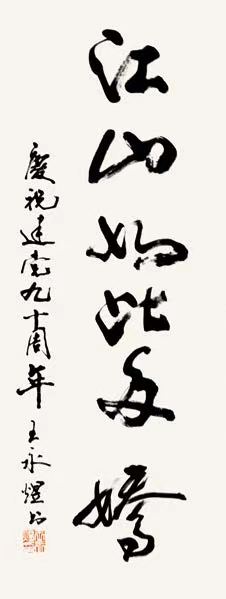 江山如此多娇
慶祝建党九十周年 王永煜书